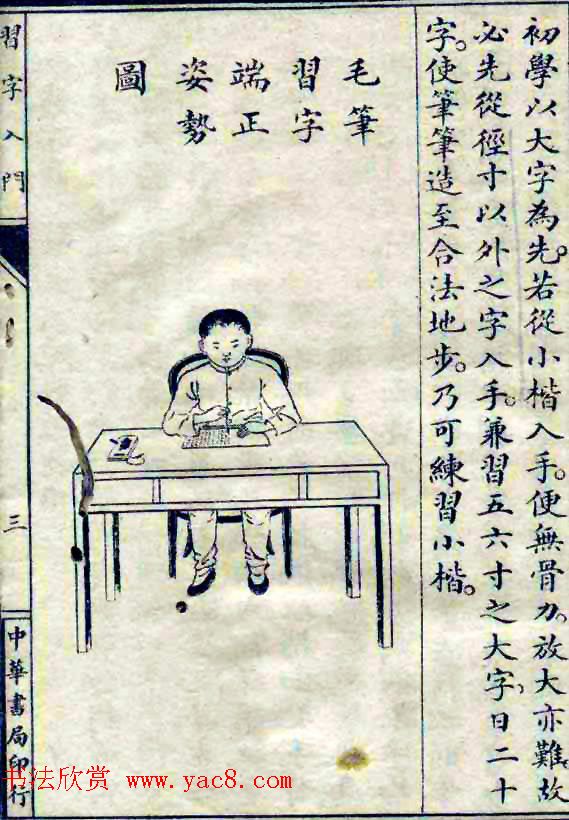 初學以大字為先。若從小楷入手。便無骨力。放大亦難。故
必先從徑寸以外之字入手。兼習五六寸之大字、日二十
字。使筆筆造至合法地步。乃可練習小楷。
毛筆
習字
端正
姿勢
圖
習字入門
三
中華書局印行
书法欣赏 www.yac8.com